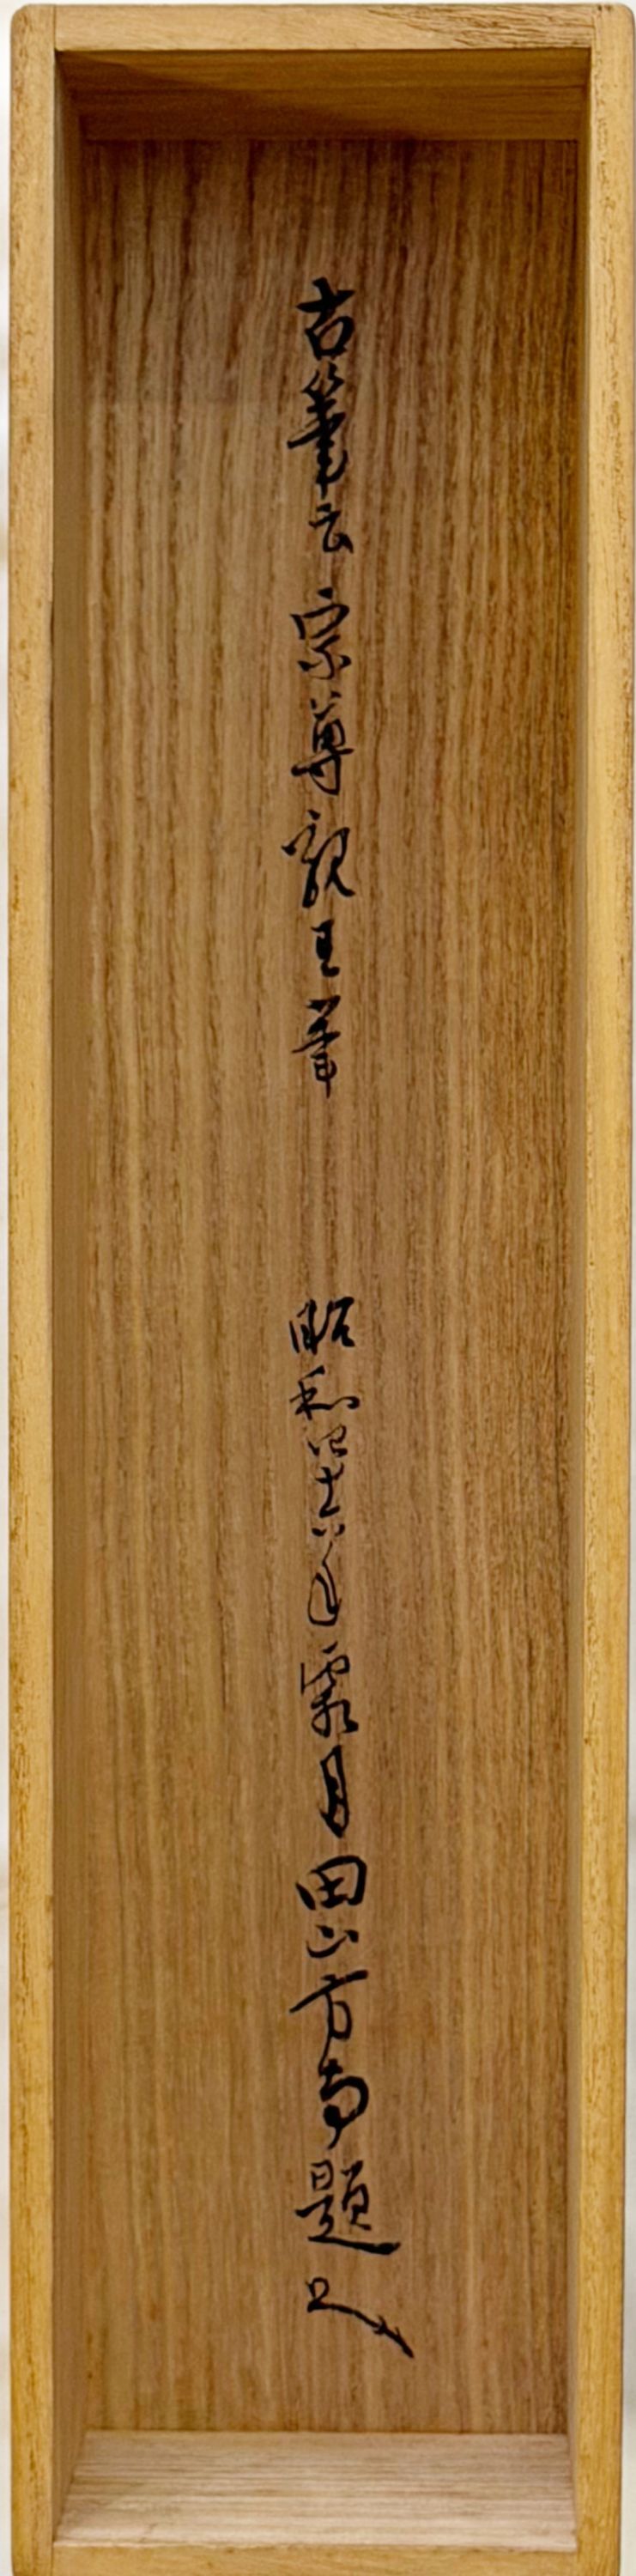 古筆云宗尊親王筆 昭和四十六年霜月田山方南題